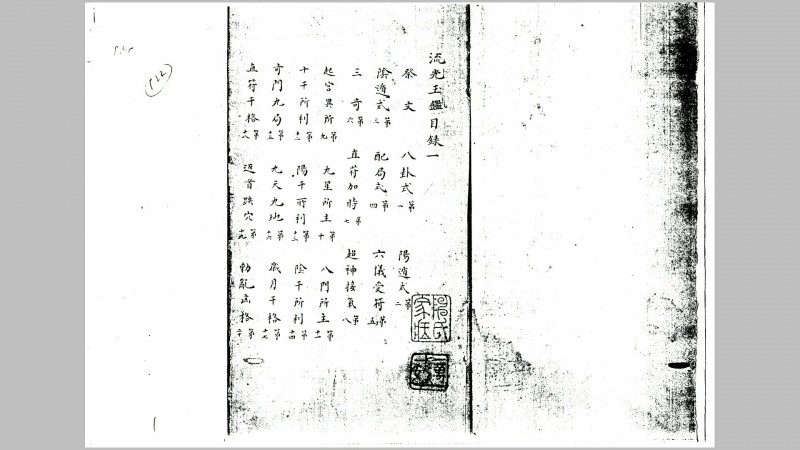 流光玉鑑目錄一
祭文 八卦式第一 陽遁式第二
陰遁式第三 配局式第四 六儀受符第五
三奇第六 直符加時第七 超神接氣第八
起宮異所第九 九星所主第十 八門所主第十一
十干所利第十二 陽干所利第十三 陰干所利第十四
奇門九局第十五 九天九地第十六 歲月干格第十七
直符干格第十八 返首跌穴第十九 格第二十